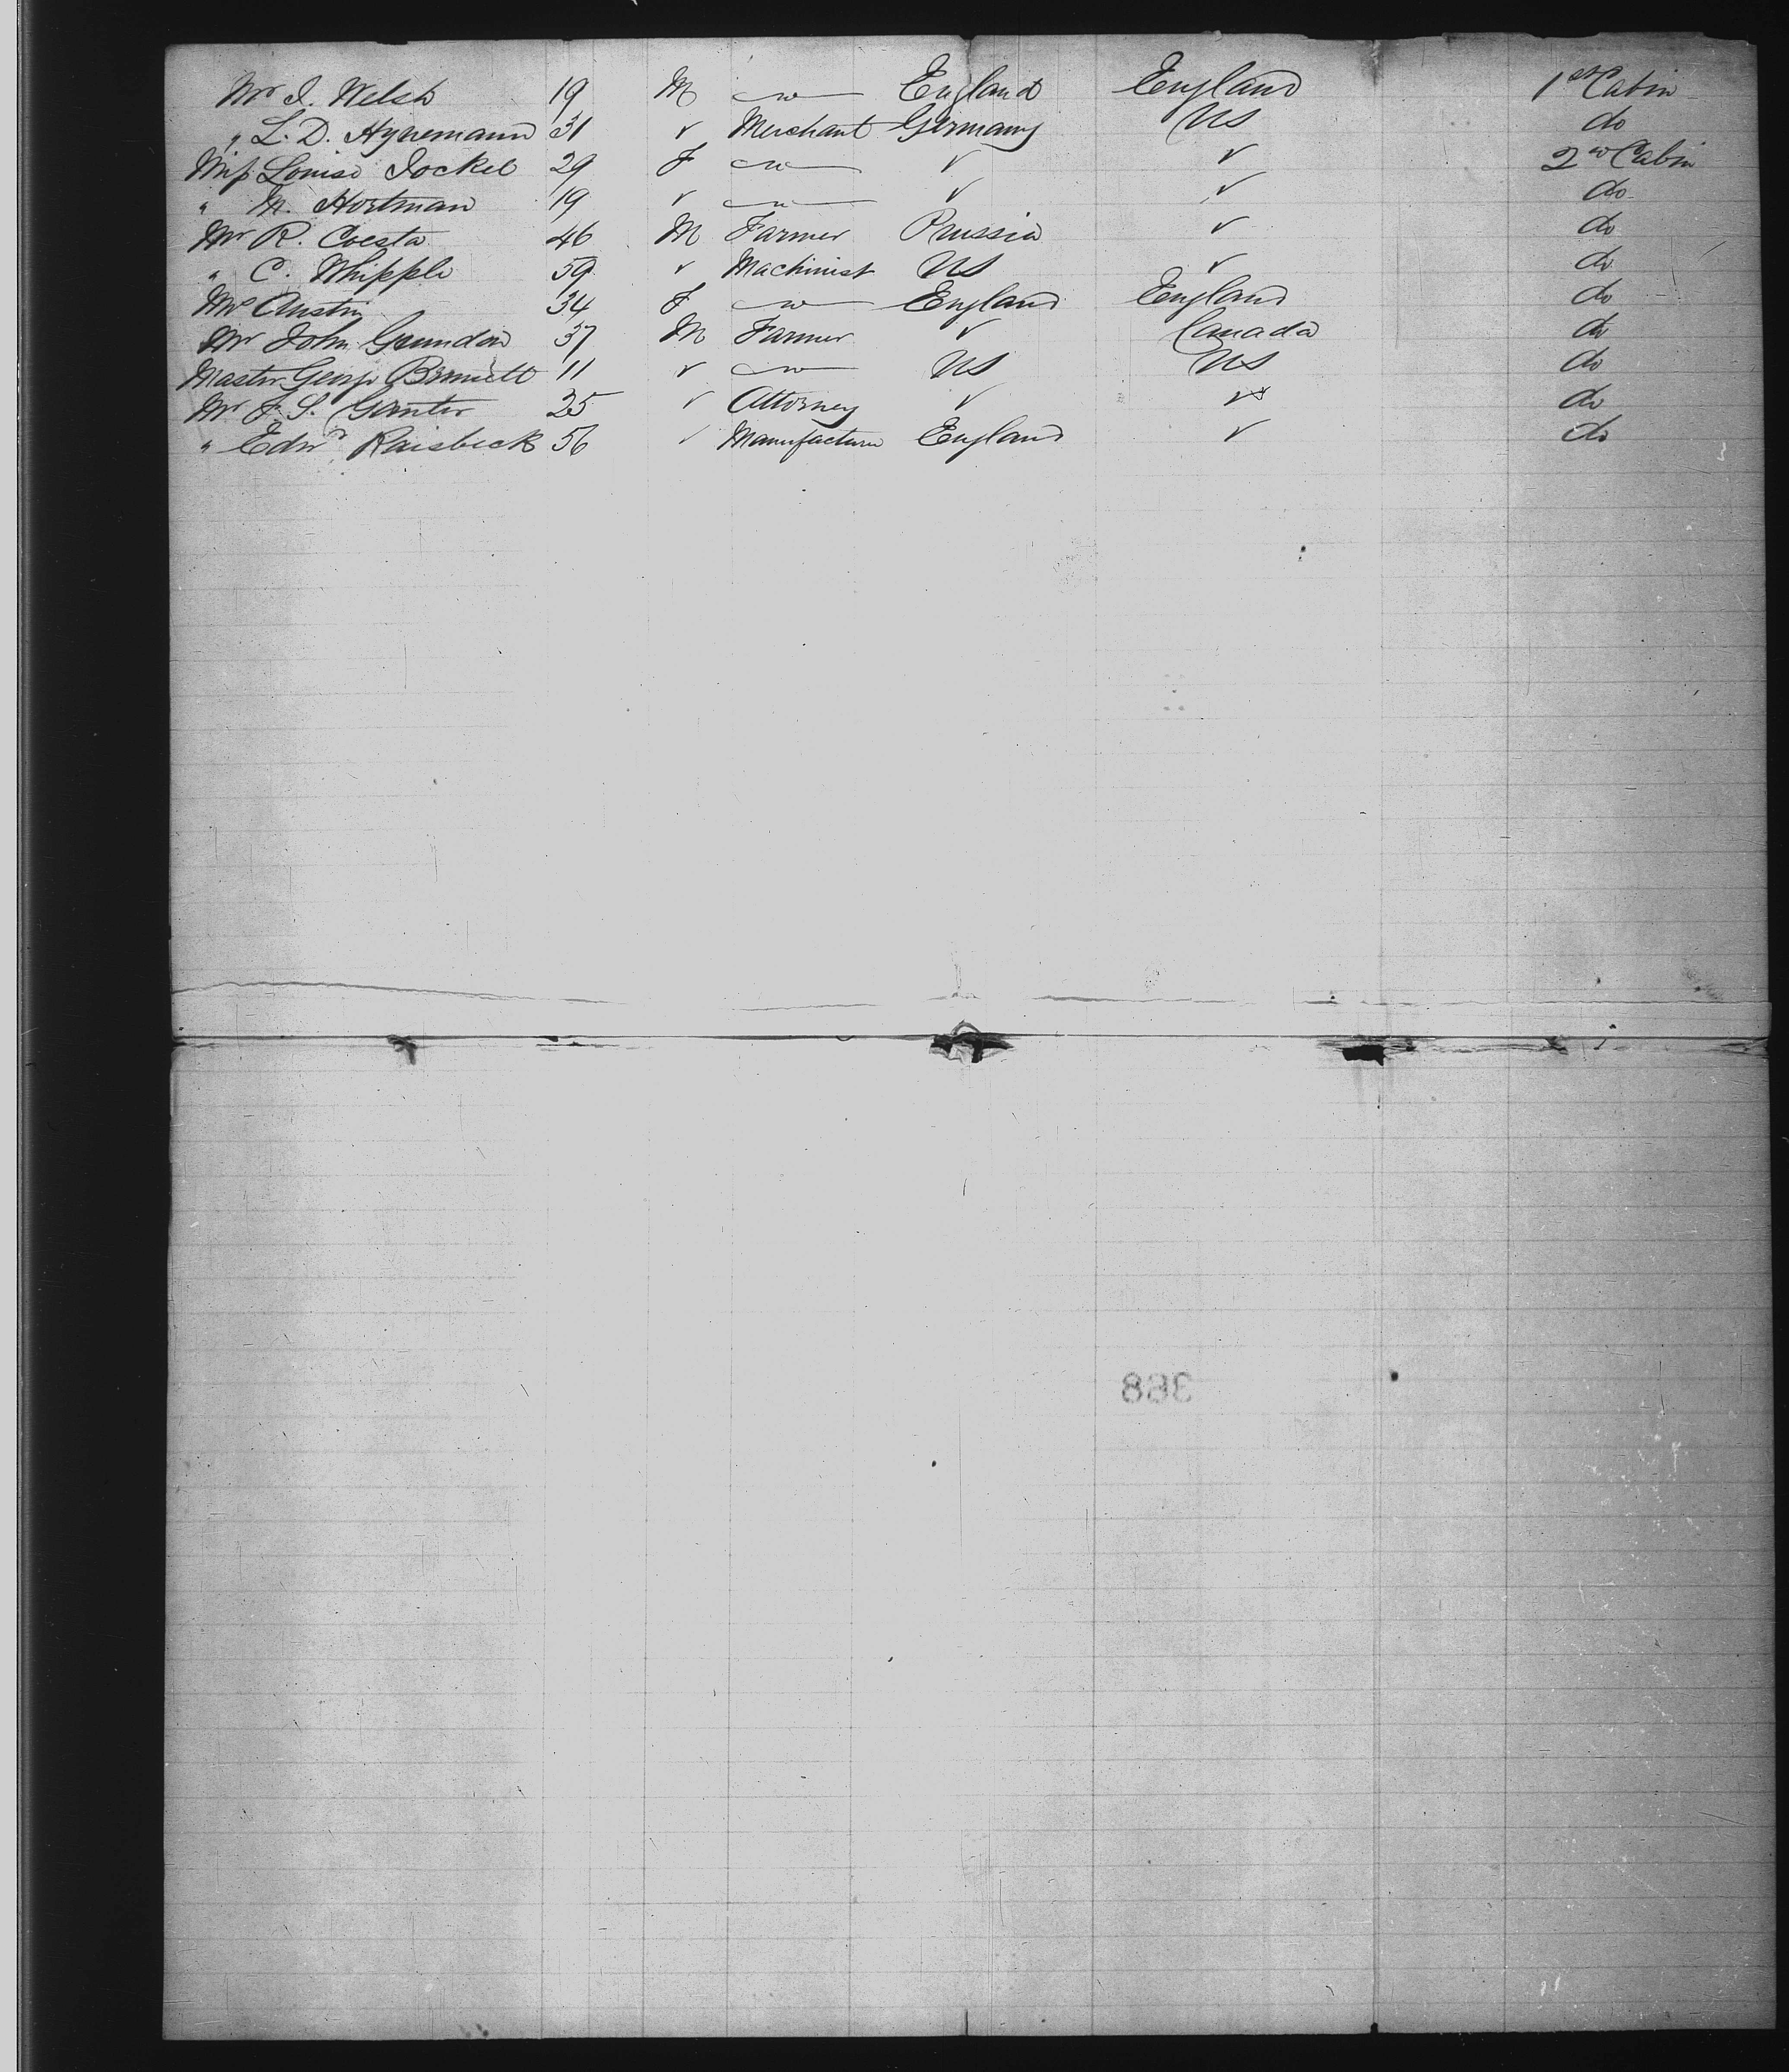 Mr I. Welsh 19 M England England 1st Cabin
" L. D. Hynemann 31 ✓ Merchant Germany US do
Miss Louise Jockel 29 F ✓ ✓ 2nd Cabin
" M. Hortman 19 ✓ ✓ ✓ do
Mr R. Coesta 46 M Farmer Prussia ✓ do
" C. Whipple 59 ✓ Machinist US ✓ do
Mrs Austin 34 F England England do
Mr John 37 M Farmer ✓ Canada do
Master George 11 ✓ US US do
Mr F. S. Ganter 25 ✓ Attorney ✓ ✓ do
" Edwd Raisbeck 56 ✓ Manufacturer England ✓ do
388